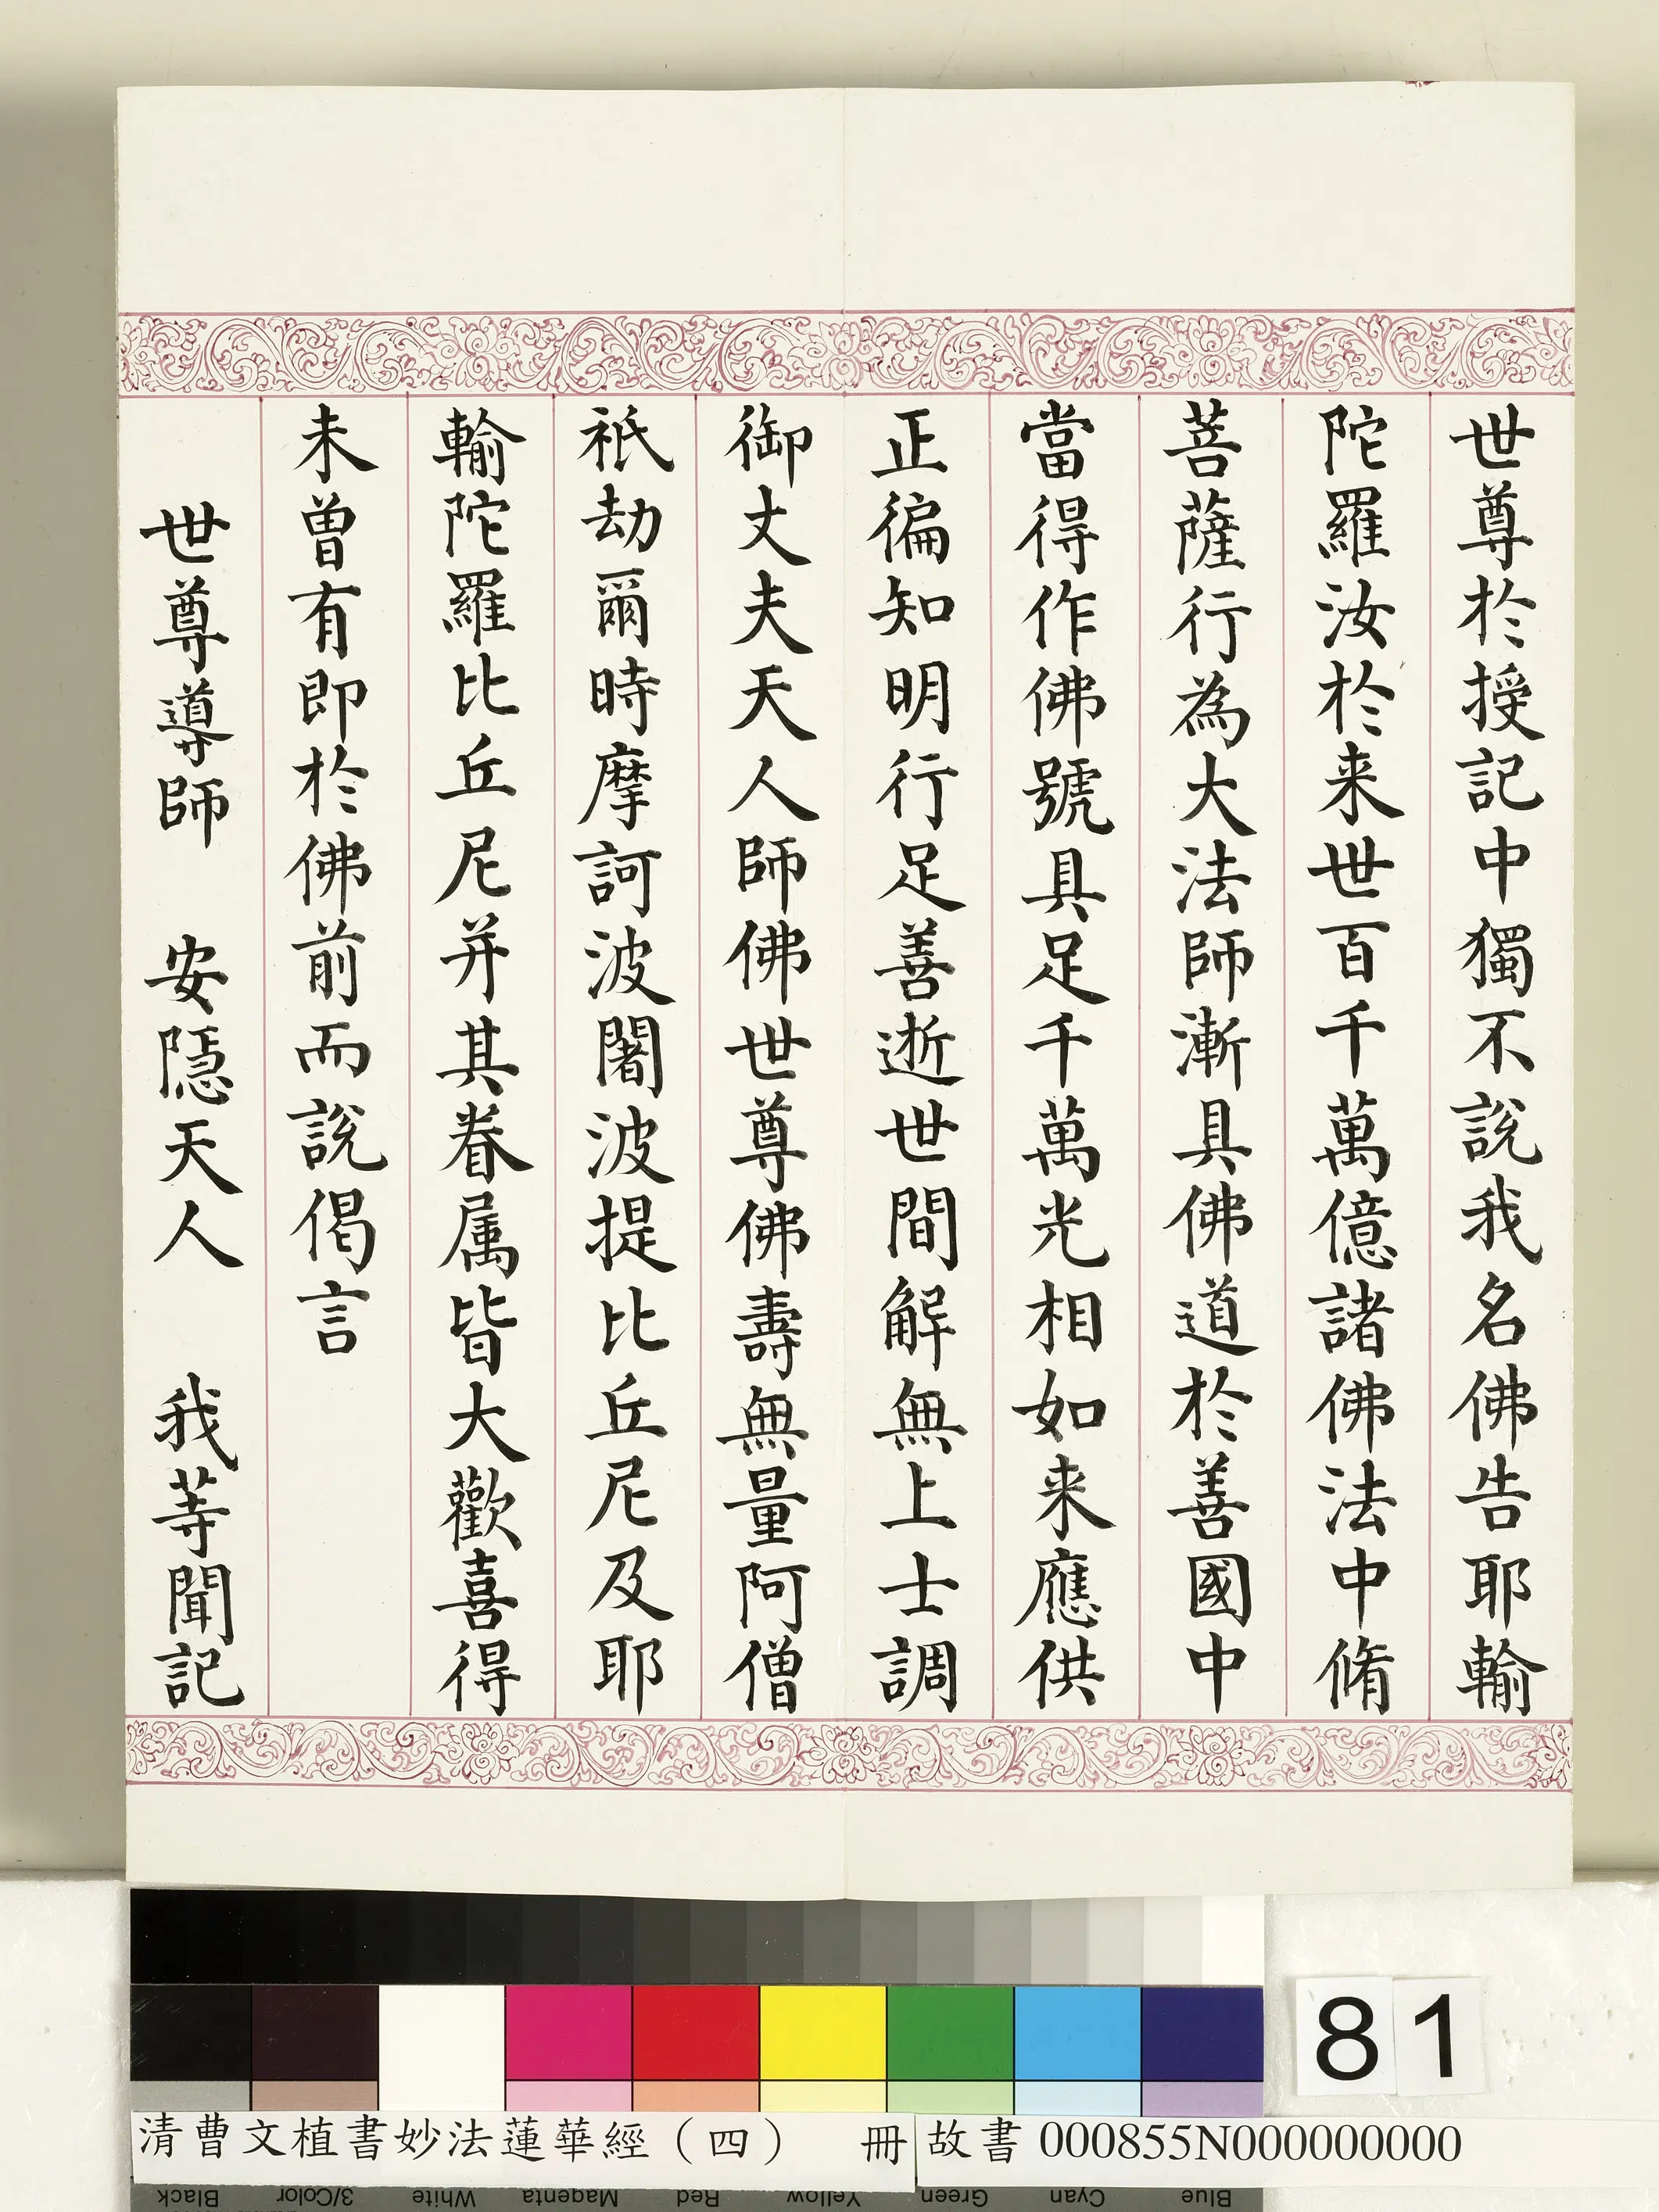 世尊於授記中獨不說我名佛告耶輸
陀羅汝於来世百千萬億諸佛法中脩
菩薩行為大法師漸具佛道於善國中
當得作佛號具足千萬光相如来應供
正徧知明行足善逝世間解無上士調
御丈夫天人師佛世尊佛壽無量阿僧
祇劫爾時摩訶波闍波提比丘尼及耶
輸陀羅比丘尼并其眷属皆大歡喜得
未曾有即於佛前而說偈言
世尊導師 安隱天人 我等聞記
81
清曹文植書妙法蓮華經（四） 冊
故書 000855N000000000
Black 3/Color White Magenta Red Yellow Green Cyan Blue